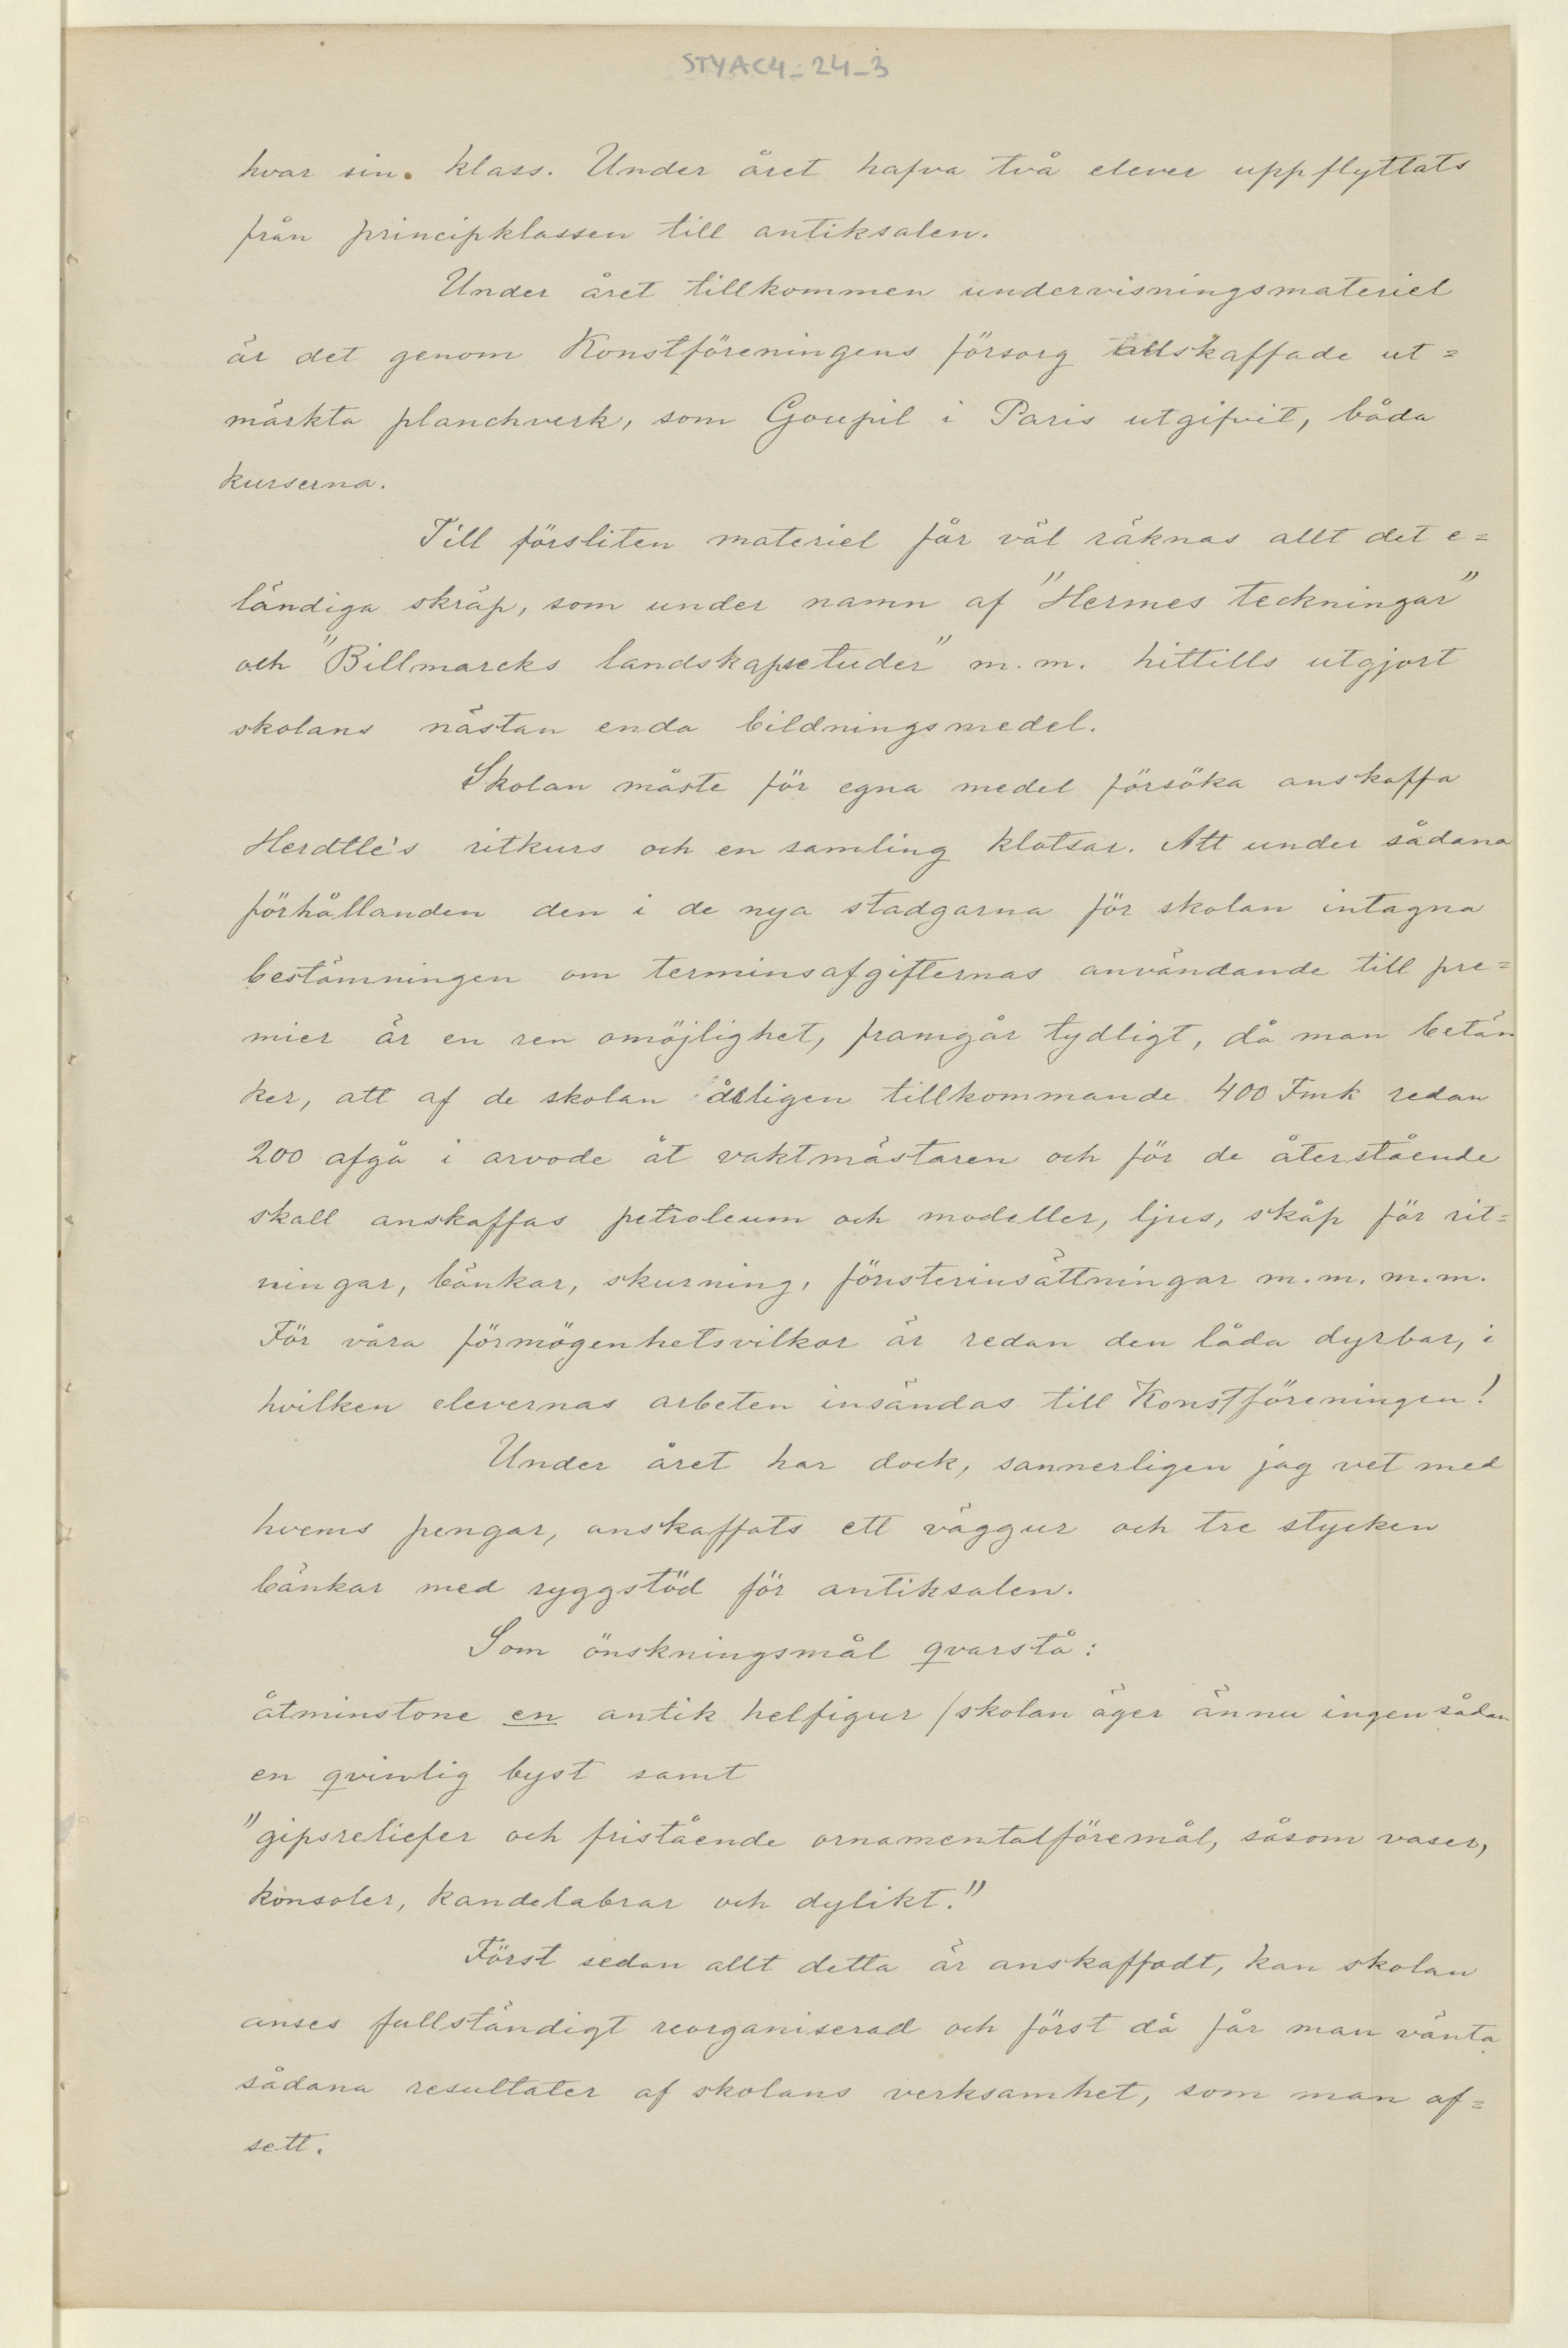 STYAC4_24_3
hvar sin. klass. Under året hafva två elever uppflyttats
från principklassen till antiksalen.
Under året tillkommen undervisningsmateriel
är det genom Konstföreningens försorg anskaffade ut=
märkta planchverk, som Goupil i Paris utgifvit, båda
kurserna.
Till försliten materiel får väl räknas allt det e=
ländiga skräp, som under namn af "Hermes teckningar"
och "Billmarcks landskapsetuder" m.m. hittills utgjort
skolans nästan enda bildningsmedel.
Skolan måste för egna medel försöka anskaffa
Herdtle's ritkurs och en samling klotsar. Att under sådana
förhållanden den i de nya stadgarna för skolan intagna
bestämningen om terminsafgifternas användande till pre=
mier är en ren omöjlighet, framgår tydligt, då man betän
ker, att af de skolan årligen tillkommande 400 Fmk redan
200 afgå i arvode åt vaktmästaren och för de återstående
skall anskaffas petroleum och modeller, ljus, skåp för rit=
ningar, bänkar, skurning, fönsterinsättningar m.m. m.m.
För våra förmögenhetsvilkor är redan den låda dyrbar, i
hvilken elevernas arbeten insändas till Konstföreningen!
Under året har dock, sannerligen jag vet med
hvems pengar, anskaffats ett väggur och tre stycken
bänkar med ryggstöd för antiksalen.
Som önskningsmål qvarstå:
åtminstone en antik helfigur /skolan äger ännu ingen sådan
en qvinlig byst samt
"gipsreliefer och fristående ornamentalföremål, såsom vaser,
konsoler, kandelabrar och dylikt."
Först sedan allt detta är anskaffadt, kan skolan
anses fullständigt reorganiserad och först då får man vänta
sådana resultater af skolans verksamhet, som man af=
sett.